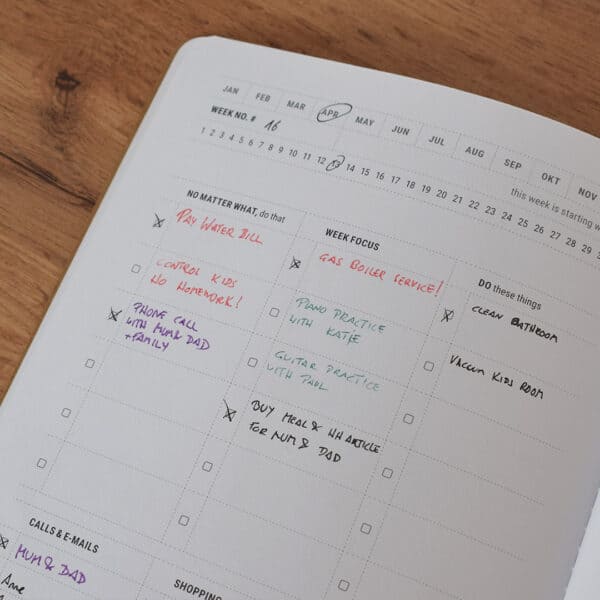 JAN FEB MAR APR MAY JUN JUL AUG SEP OKT NOV
WEEK NO. # 16
1 2 3 4 5 6 7 8 9 10 11 12 13 14 15 16 17 18 19 20 21 22 23 24 25 26 27 28 29 3
this week is starting w
NO MATTER WHAT, do that
PAY WATER BILL
CONTROL KIDS
NO HOMEWORK!
PHONE CALL
WITH MUM & DAD
+ FAMILY
WEEK FOCUS
GAS BOILER SERVICE!
PIANO PRACTICE
WITH KATIE
GUITAR PRACTICE
WITH PAUL
BUY MEAL & HH ARTICLE
FOR MUM & DAD
DO these things
CLEAN BATHROOM
VACCUM KIDS ROOM
CALLS & E-MAILS
MUM & DAD
Anne
SHOPPING